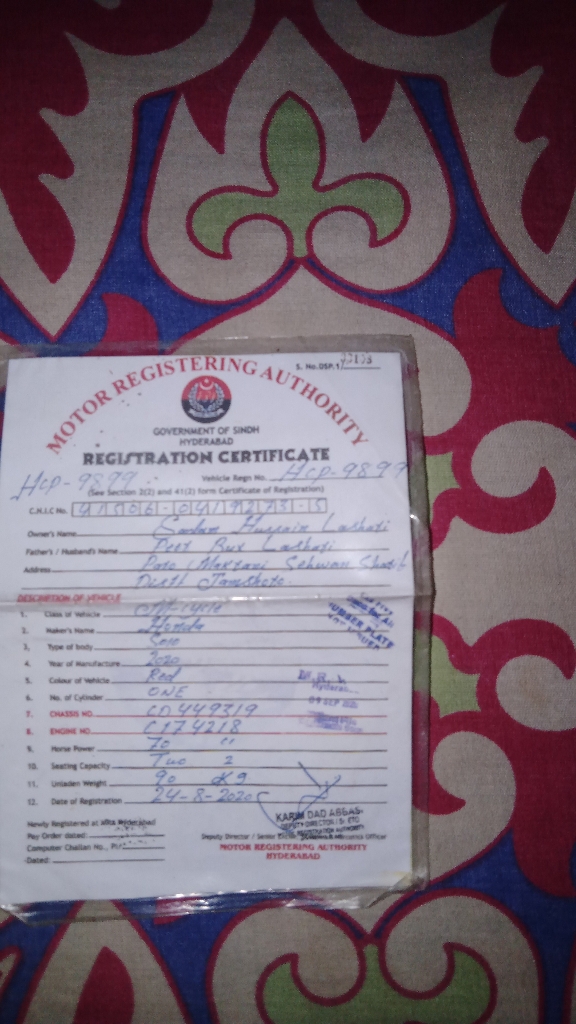 S. No.DSP.1/
MOTOR REGISTERING AUTHORITY
GOVERNMENT OF SINDH
HYDERABAD
REGISTRATION CERTIFICATE
HCP-9899 Vehicle Regn No. HCP-9899
(See Section 2(2) and 41(2) form Certificate of Registration)
C.N.I.C No. 41506-0419273-5
Owner's Name Hussain Lashari
Father's / Husband's Name Peer Bux Lashari
Address Sehwan Sharif
Distt Jamshoro.
DESCRIPTION OF VEHICLE
1. Class of Vehicle M-Cycle
2. Maker's Name Honda
3. Type of body Solo
4. Year of Manufacture 2020
5. Colour of Vehicle Red
6. No. of Cylinder ONE
7. CHASSIS NO. CD449319
8. ENGINE NO. C174218
9. Horse Power 70 "
10. Seating Capacity Two 2
11. Unladen Weight 90 Kg
12. Date of Registration 24-8-2020
NUMBER PLATE
SEP 2020
KARIM DAD ABBASI
DEPUTY DIRECTOR / Sr. ETO
Newly Registered at Hyderabad
Pay Order dated:
Computer Challan No.,
Dated:
Deputy Director / Senior Officer
MOTOR REGISTERING AUTHORITY
HYDERABAD